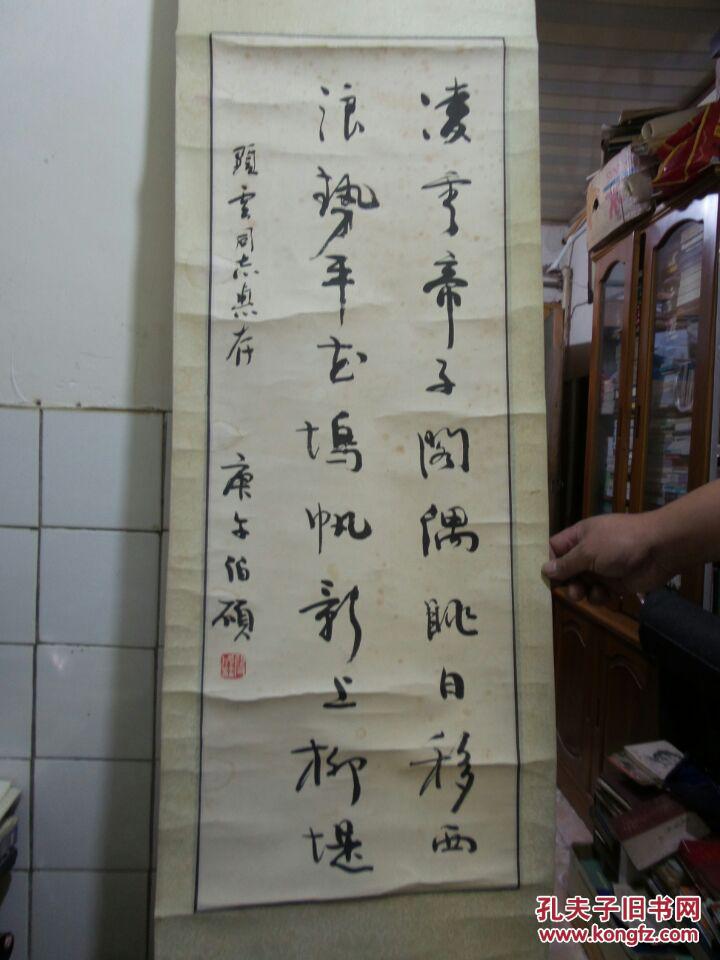 凌秀帝子阁偶眺日移西
浪势平花坞帆影上柳堤
顕云同志惠存
庚午伯硕
孔夫子旧书网
www.kongfz.com